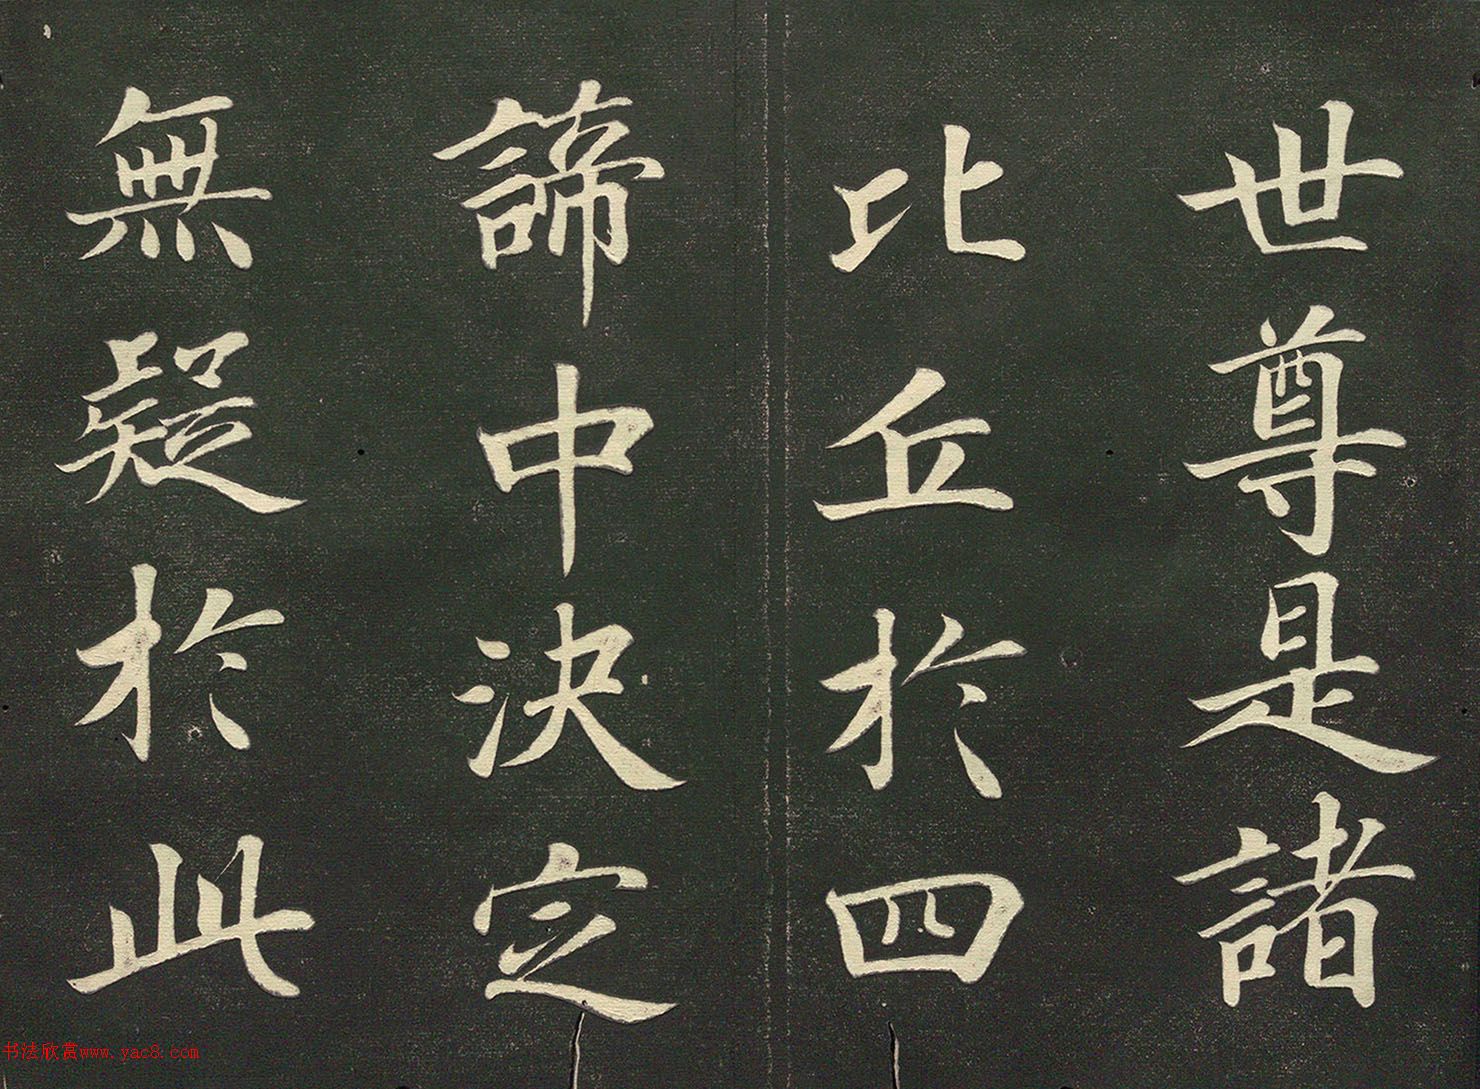 世尊是諸
比丘於四
諦中決定
無疑於此
书法欣赏www.yac8.com